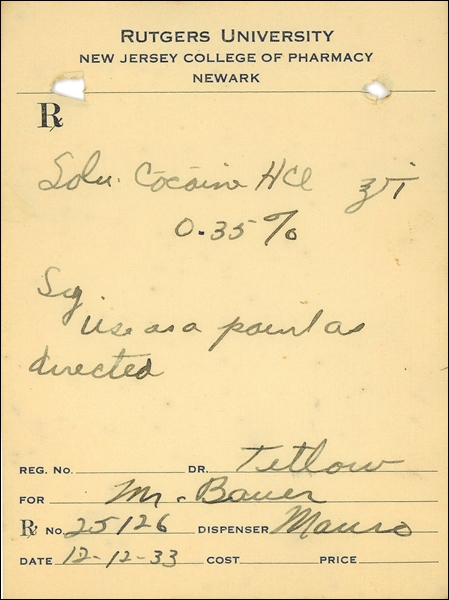 RUTGERS UNIVERSITY
NEW JERSEY COLLEGE OF PHARMACY
NEWARK
℞
Solu. Cocaine HCl ℥i
0.35%
Sig
Use as a paint as
directed
REG. NO. DR. Tetlow
FOR Mr. Bauer
℞ NO. 25126 DISPENSER Mauro
DATE 12-12-33 COST PRICE